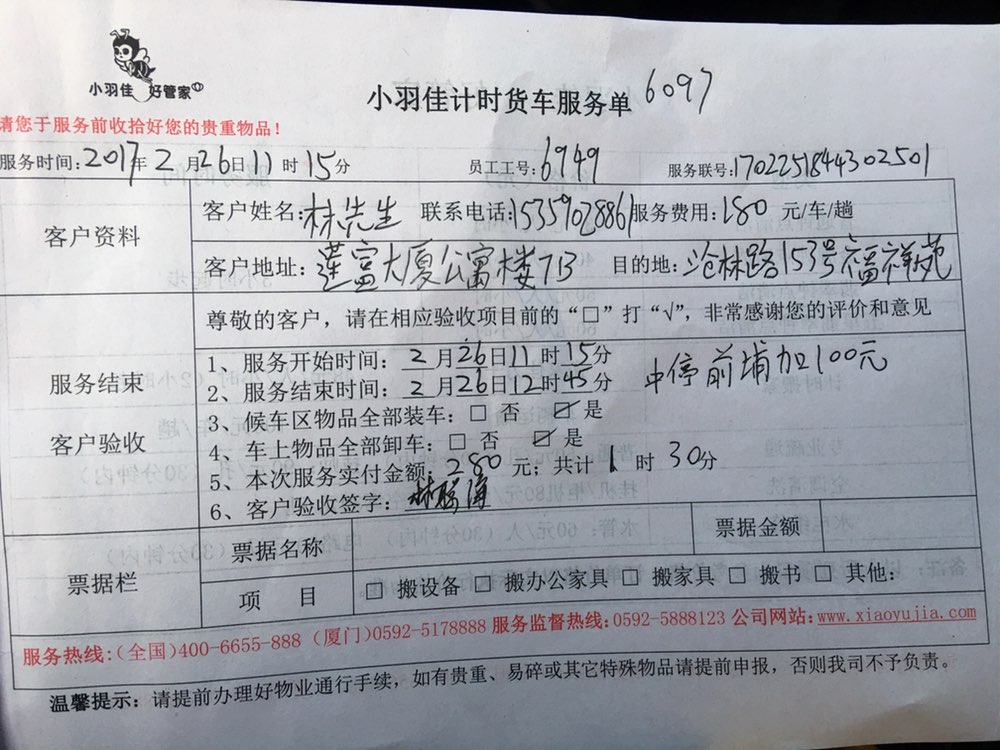 小羽佳 好管家
小羽佳计时货车服务单 6097
请您于服务前收拾好您的贵重物品！
服务时间：2017年2月26日11时15分 员工工号：6949 服务联号：1702251844302501
客户资料
客户姓名：林先生 联系电话：15359028861 服务费用：180 元/车/趟
客户地址：莲富大厦公寓楼7B 目的地：沧林路153号福祥苑
服务结束
客户验收
尊敬的客户，请在相应验收项目前的“□”打“√”，非常感谢您的评价和意见
1、服务开始时间：2月26日11时15分
2、服务结束时间：2月26日12时45分 中停前埔加100元
3、候车区物品全部装车：□ 否 ☑ 是
4、车上物品全部卸车：□ 否 ☑ 是
5、本次服务实付金额：280 元；共计1时30分
6、客户验收签字：
票据栏
票据名称 票据金额
项 目 □ 搬设备 □ 搬办公家具 □ 搬家具 □ 搬书 □ 其他：
服务热线：(全国)400-6655-888 (厦门)0592-5178888 服务监督热线：0592-5888123 公司网站：www.xiaoyujia.com
温馨提示：请提前办理好物业通行手续，如有贵重、易碎或其它特殊物品请提前申报，否则我司不予负责。